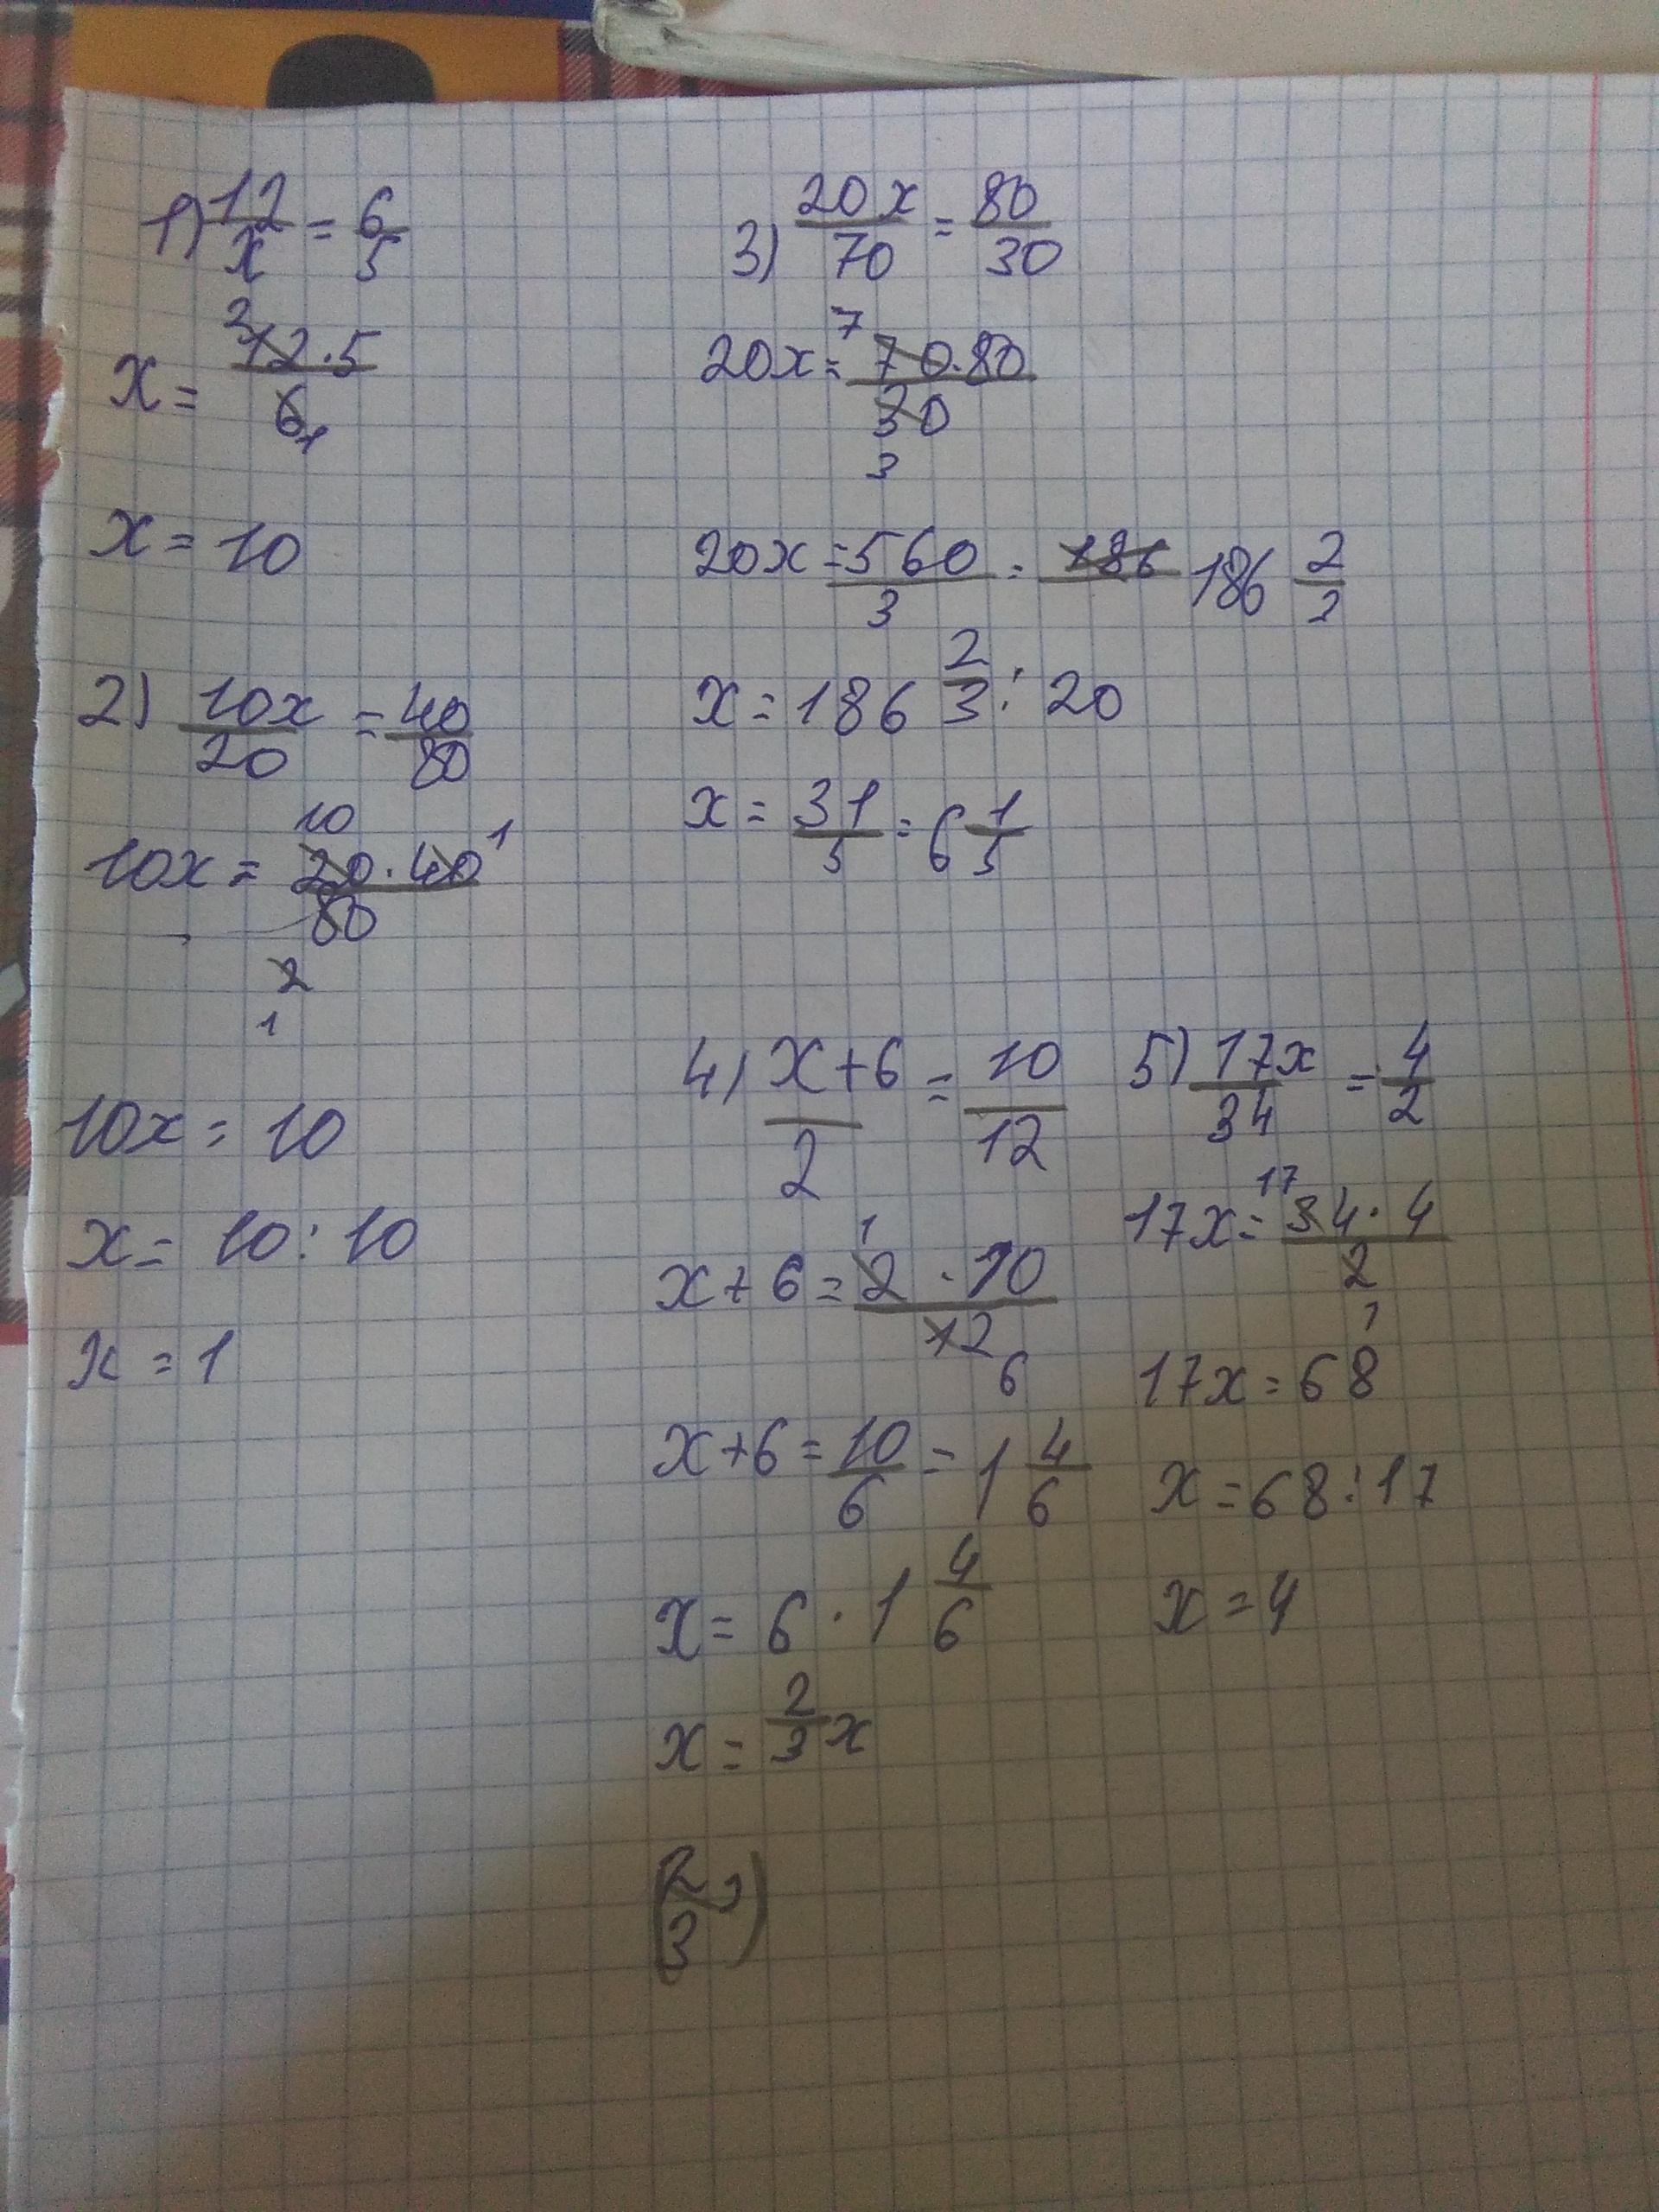 1) 12/x = 6/5
x = 12·5/6
2
1
x = 10
2) 10x/20 = 40/80
10x = 20·40/80
10
1
2
1
10x = 10
x = 10:10
x = 1
3) 20x/70 = 80/30
20x = 70·80/30
7
3
20x = 560/3 = 186 186 2/3
x = 186 2/3 : 20
x = 31/5 = 6 1/5
4) x+6/2 = 10/12
x+6 = 2·10/12
1
6
x+6 = 10/6 = 1 4/6
x = 6·1 4/6
x = 2/3 x
(2/3)
5) 17x/34 = 4/2
17x = 34·4/2
17
1
17x = 68
x = 68:17
x = 4